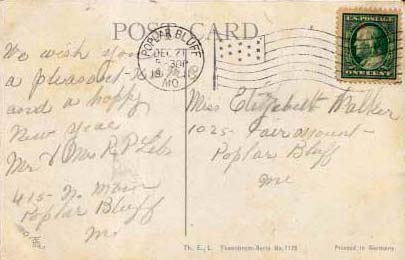 POST CARD
POPLAR BLUFF
DEC 21
5-30P
MO.
U.S. POSTAGE
ONE CENT
We wish you
a pleasant X mas
and a happy
New Year
Mr & Mrs R P
415- N. Main
Poplar Bluff
Mo
Miss Elizabeth Walker
1025- Fairmount-
Poplar Bluff
Mo
Th. E., L. Theochrom-Serie No. 1128
Printed in Germany.